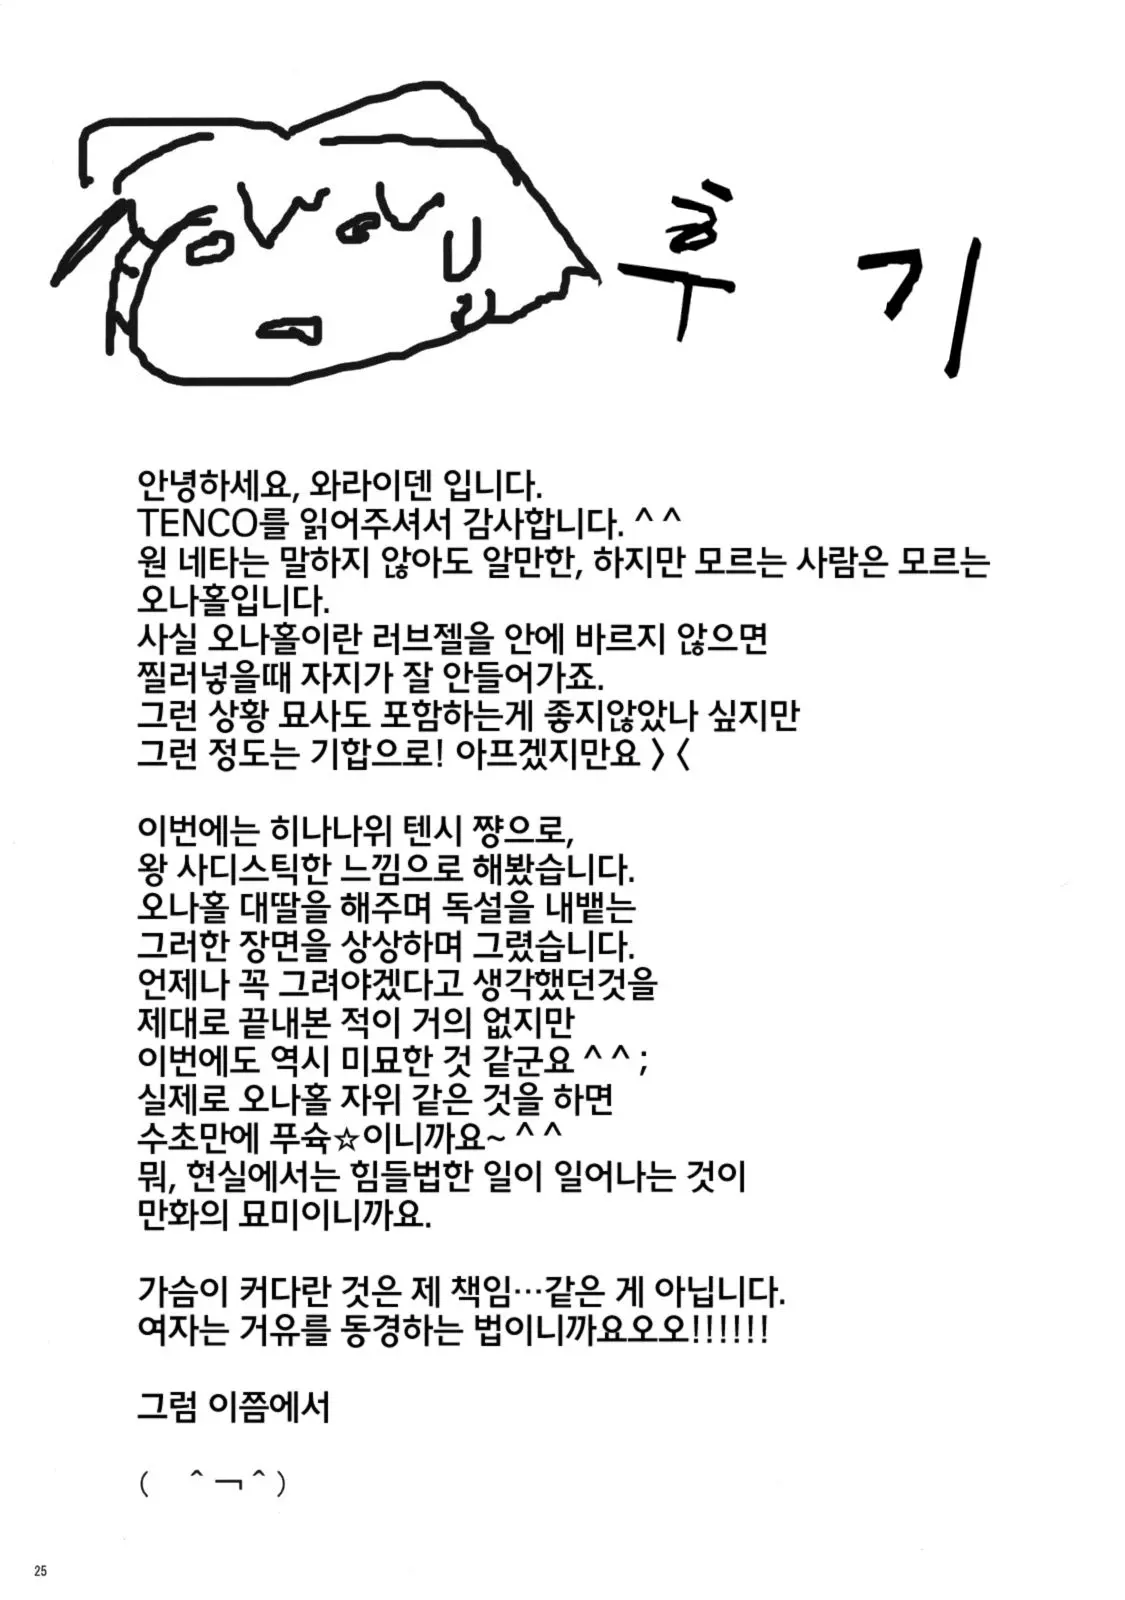 후기
안녕하세요, 와라이덴 입니다.
TENCO를 읽어주셔서 감사합니다. ^ ^
원 네타는 말하지 않아도 알만한, 하지만 모르는 사람은 모르는
오나홀입니다.
사실 오나홀이란 러브젤을 안에 바르지 않으면
찔러넣을때 자지가 잘 안들어가죠.
그런 상황 묘사도 포함하는게 좋지않았나 싶지만
그런 정도는 기합으로! 아프겠지만요 〉〈
이번에는 히나나위 텐시 쨩으로,
왕 사디스틱한 느낌으로 해봤습니다.
오나홀 대딸을 해주며 독설을 내뱉는
그러한 장면을 상상하며 그렸습니다.
언제나 꼭 그려야겠다고 생각했던것을
제대로 끝내본 적이 거의 없지만
이번에도 역시 미묘한 것 같군요 ^ ^ ;
실제로 오나홀 자위 같은 것을 하면
수초만에 푸슉☆이니까요~ ^ ^
뭐, 현실에서는 힘들법한 일이 일어나는 것이
만화의 묘미이니까요.
가슴이 커다란 것은 제 책임…같은 게 아닙니다.
여자는 거유를 동경하는 법이니까요오오!!!!!!
그럼 이쯤에서
( ^ ㅡ ^ )
25